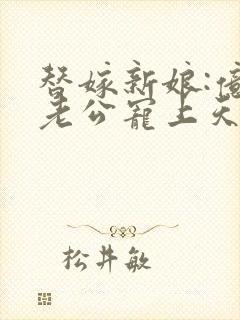 替嫁新娘:亿
老公宠上天
松井敏